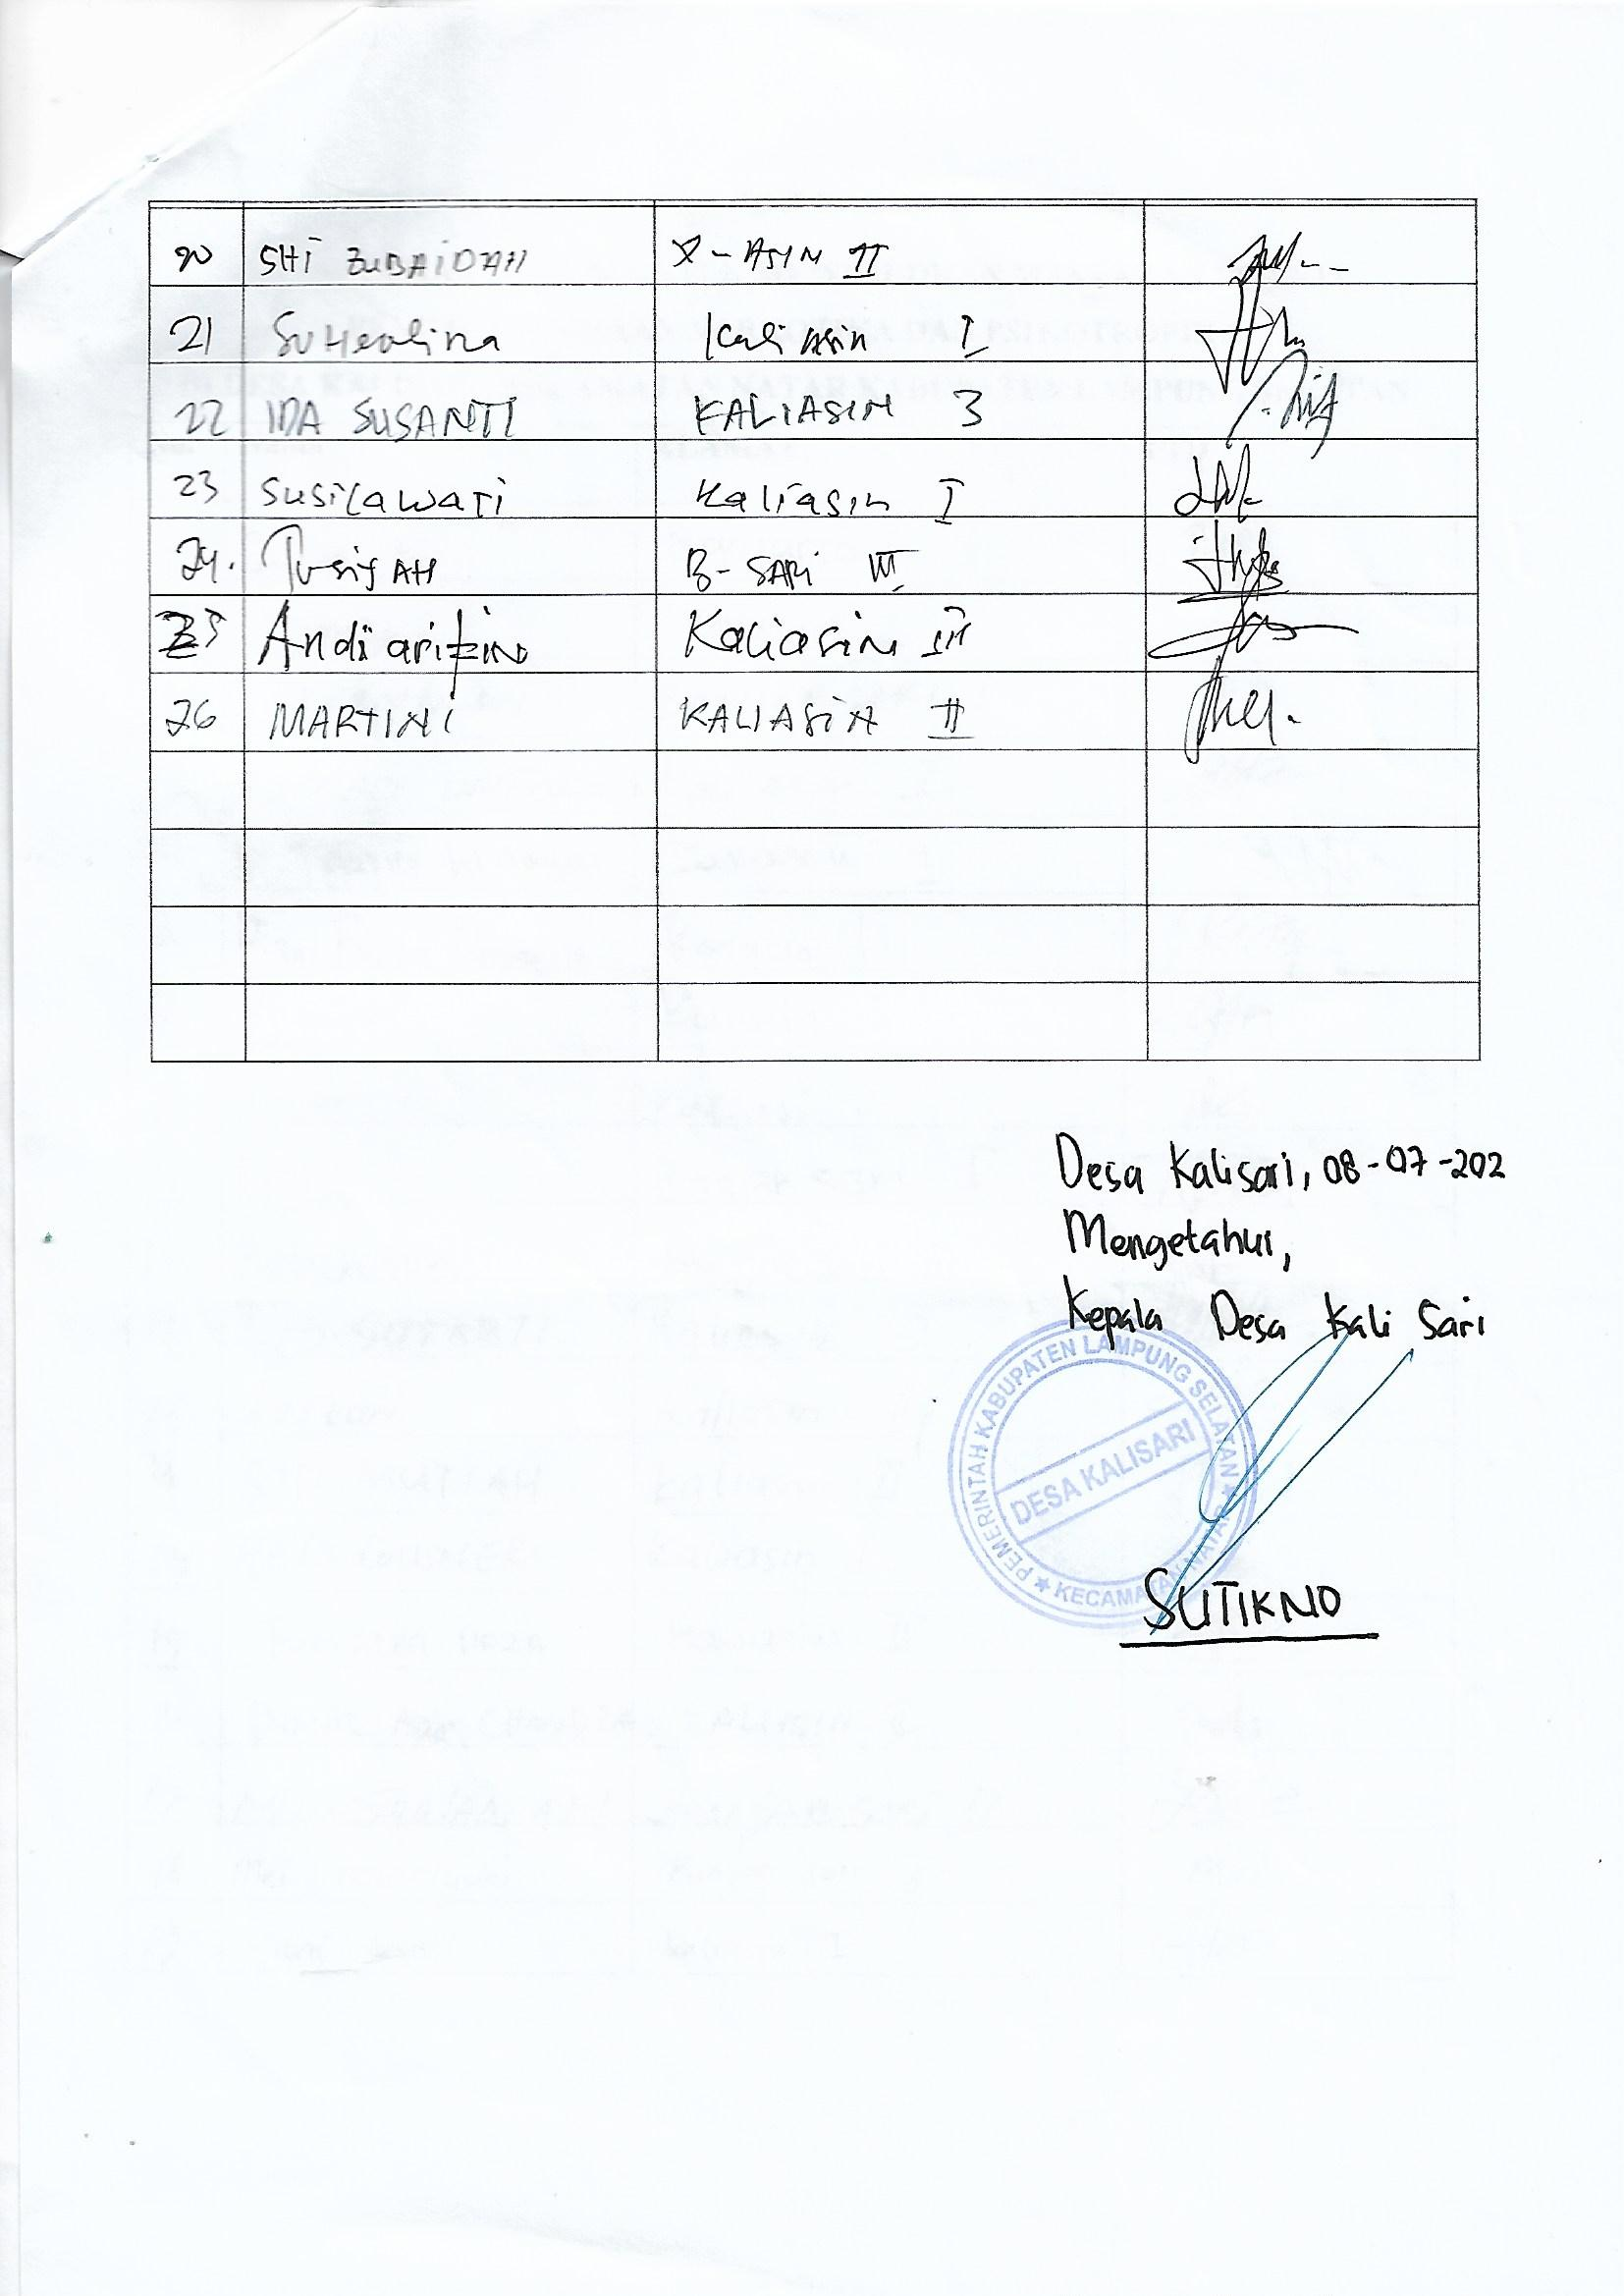 20 SHI ZUBAIDAH X-ASIN II
21 SuHeolina Kali Asin I
22 IDA SUSANTI KALIASIN 3
23 Susilawati Kaliasin I
24. B-SARI III
25 Andi arifin Kaliasin III
26 MARTINI KALIASIN II
Desa Kalisari, 08-07-202
Mengetahui,
Kepala Desa Kali Sari
PEMERINTAH KABUPATEN LAMPUNG SELATAN
DESA KALISARI
KECAMATAN NATAR
SUTIKNO